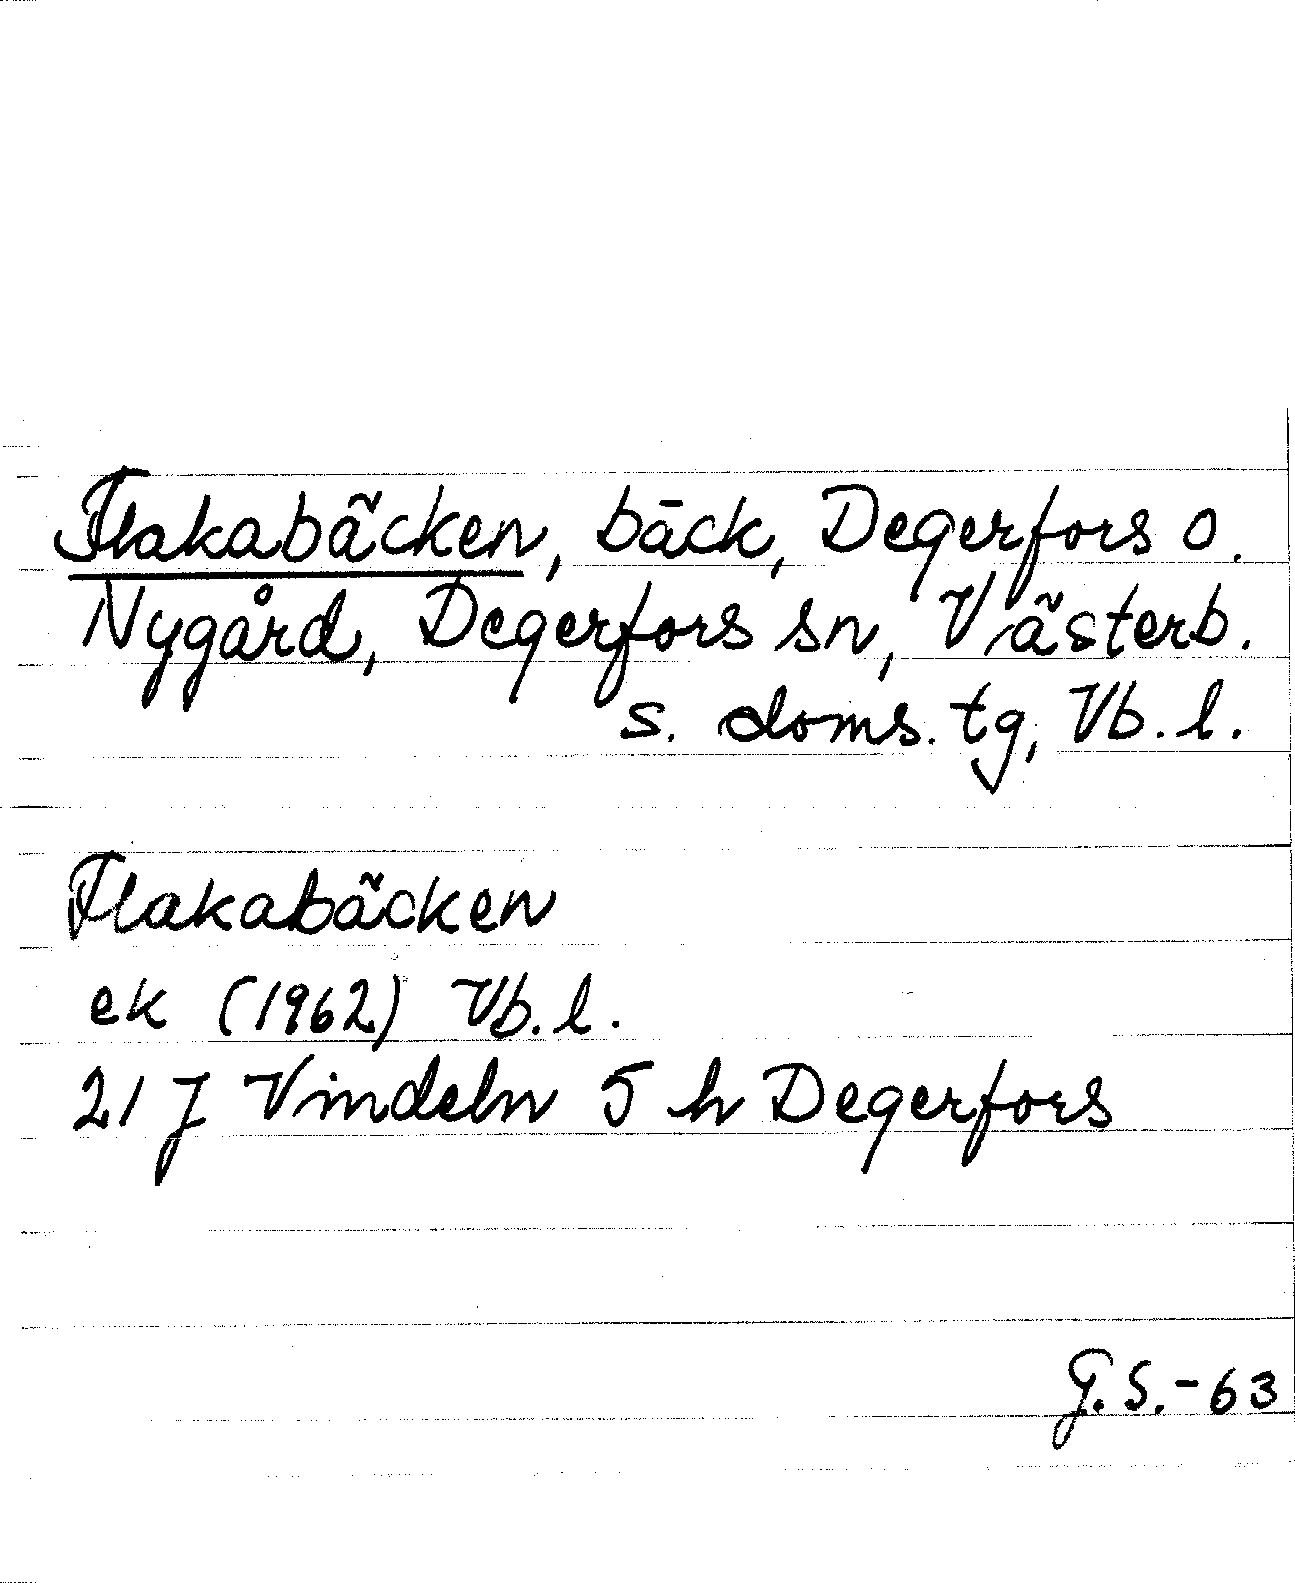 Flakabäcken, bäck, Degerfors o.
Nygård, Degerfors sn, Västerb.
s. doms. tg, Vb. l.
Flakabäcken
ek (1962) Vb. l.
21 J Vindeln 5 h Degerfors
G. S. - 63